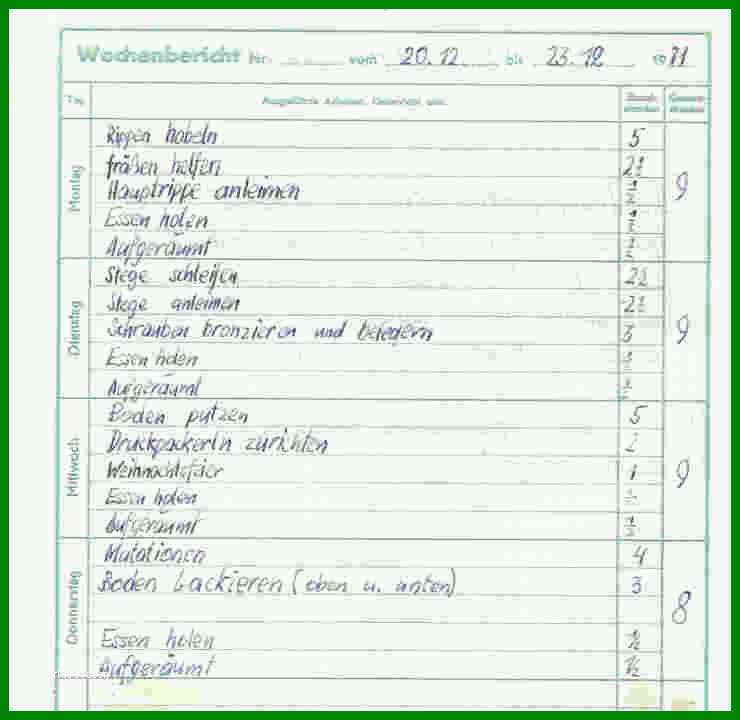 Wochenbericht Nr. vom 20.12. bis 23.12 19 71
Tag Ausgeführte Arbeiten, Unterricht usw.
Montag
Rippen hobeln 5
fräßen helfen 2½
Hauptrippe anleimen ½
Essen holen ½
Aufgeräumt ½
9
Dienstag
Stege schleifen 2½
Stege anleimen 2½
Schrauben bronzieren und beledern 3
Essen holen ½
Aufgeräumt ½
9
Mittwoch
Boden putzen 5
Druckpackerln zurichten 2
Weihnachtsfeier 1
Essen holen ½
Aufgeräumt ½
9
Donnerstag
Mutationen 4
Boden Lackieren (oben u. unten) 3
Essen holen ½
Aufgeräumt ½
8